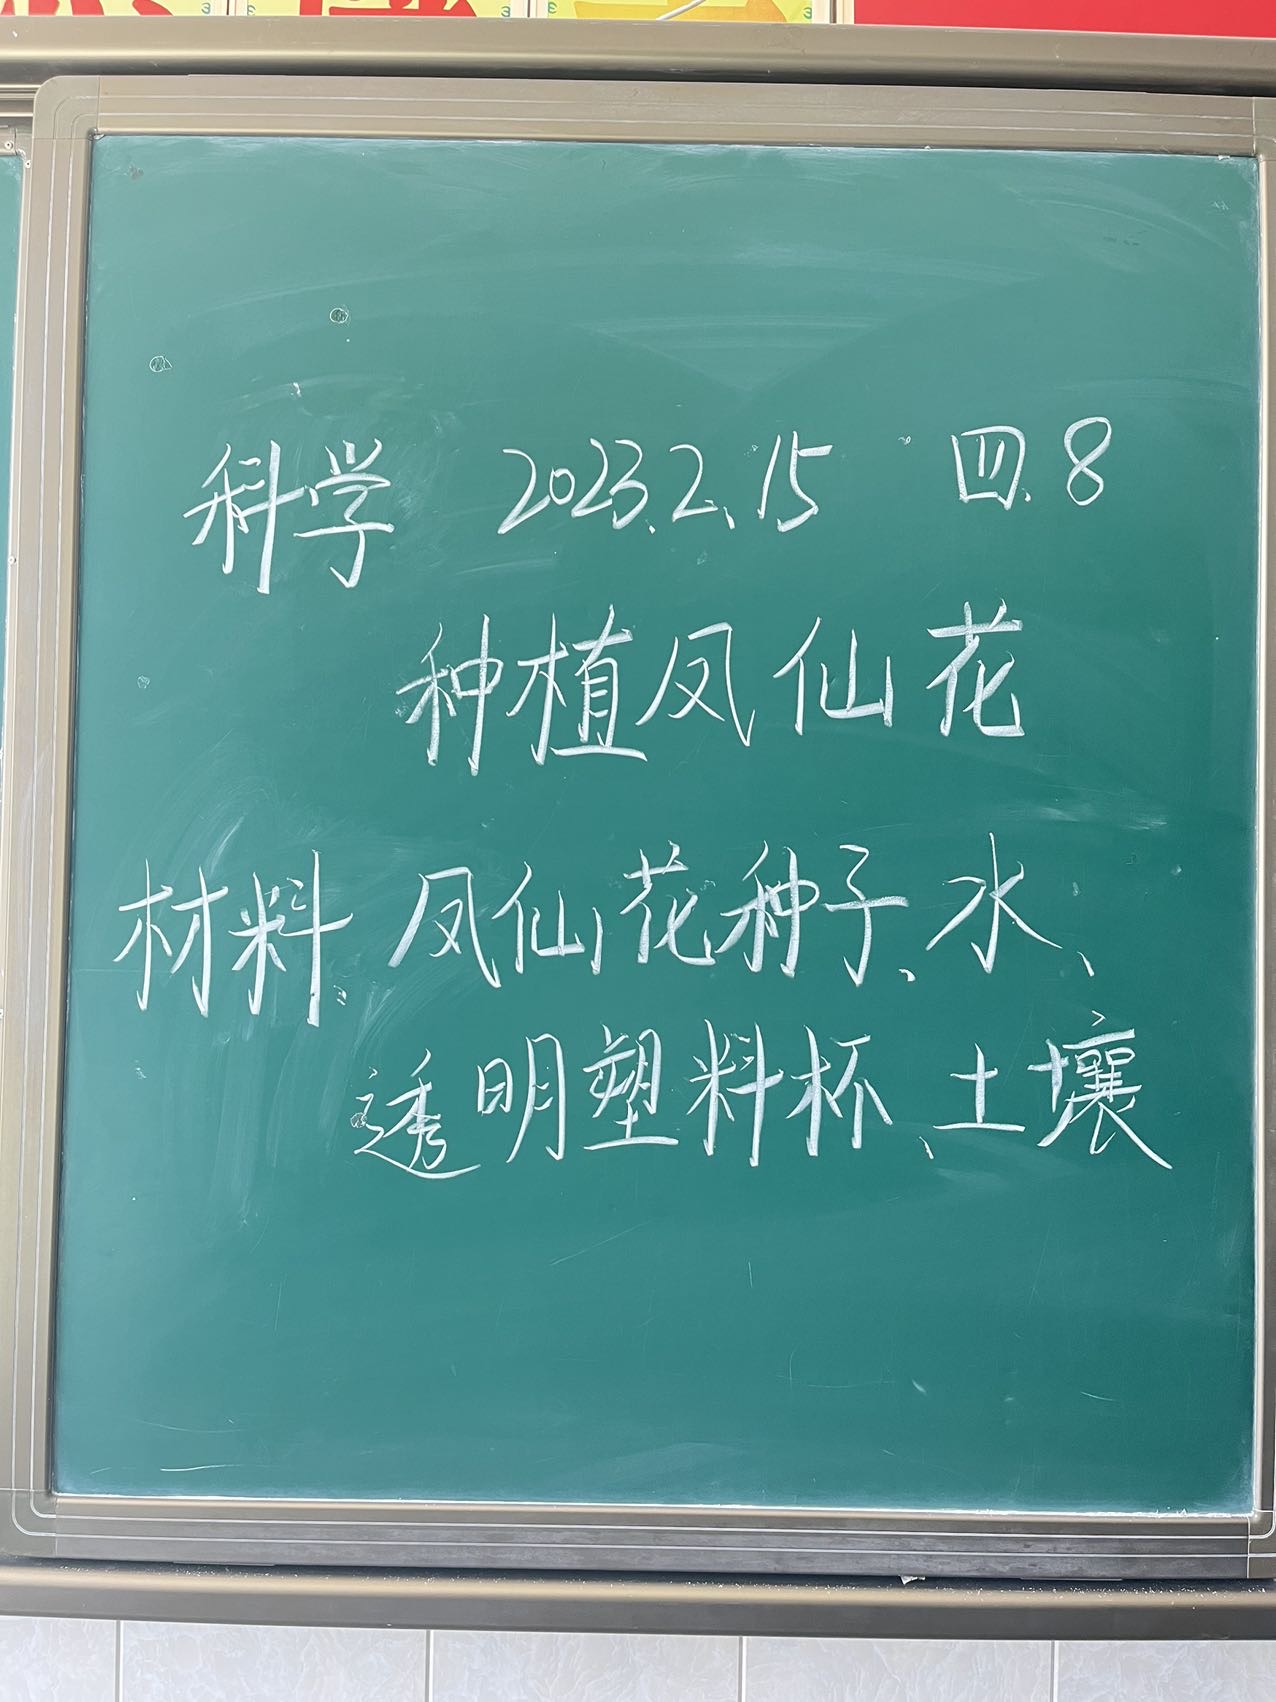 科学 2023.2.15 四.8
种植凤仙花
材料:凤仙花种子、水、
透明塑料杯、土壤